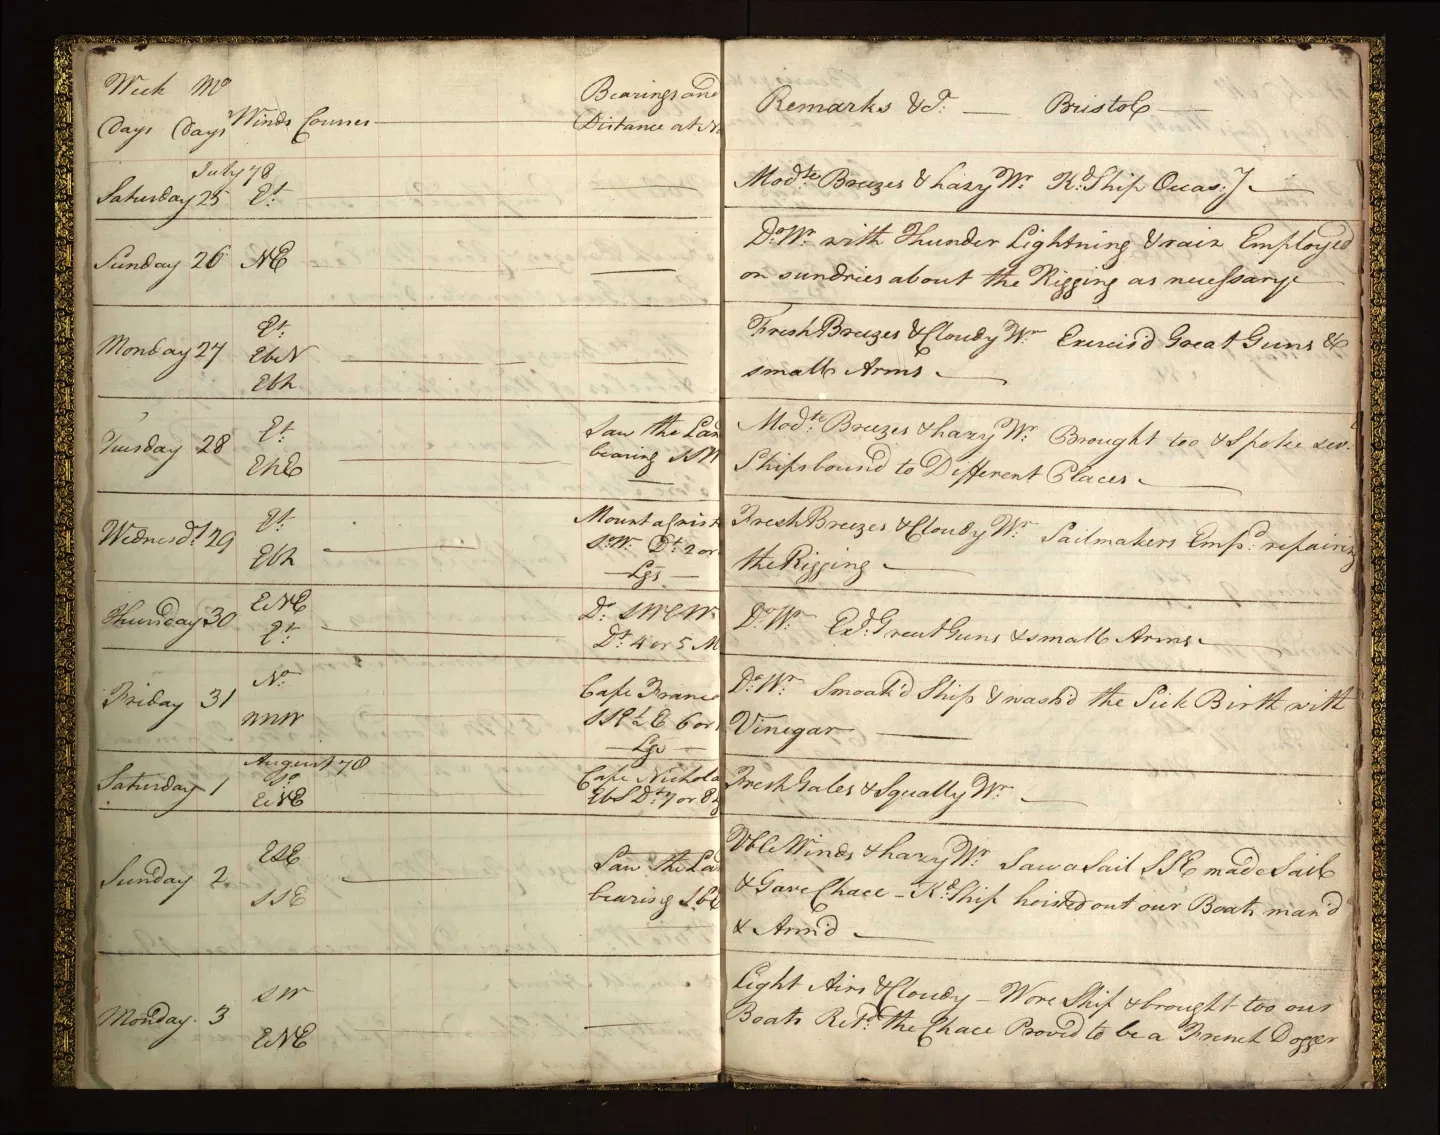 Week Mo
Days Days Winds Courses
Bearings and
Distance at
Remarks &c. Bristol
July 78
Saturday 25 Et.
Modte. Breezes & hazy Wr. Kd. Ship Occas:y
Sunday 26 NE
Do. Wr. with Thunder Lightning & rain Employed
on sundries about the Rigging as necessary
Monday 27
Et.
EbN
Fresh Breezes & Cloudy Wr. Exercis'd Great Guns &
small Arms
Tuesday 28
Et.
Saw the Lan
bearing SSW
Modte. Breezes & hazy Wr. Brought too & Spoke sev.
Ships bound to Different Places
Wednesd. 29
Et.
Mount a Crist
SoWt. Dt. 2 or
Lgs
Fresh Breezes & Cloudy Wr. Sailmakers Empd. repairing
the Rigging
Thursday 30
ENE
Et.
Do. SW
Dt. 4 or 5 M
Do. Wr. Exd. Great Guns & small Arms
Friday 31
No.
NNW
Cape Franc
6 or
Lgs
Do. Wr. Smoak'd Ship & wash'd the Sick Birth with
Vinegar
August 78
Saturday 1
So.
ENE
Cape Nichola
EbS Dt. 7 or 8 Lg
Fresh Gales & Squally Wr.
Sunday 2
ESE
SSE
Saw the La
bearing SbE
Vble Winds & hazy Wr. Saw a Sail SSE made Sail
& Gave Chace - Kd. Ship hoisted out our Boats man'd
& Arm'd
Monday 3
SW
ENE
Light Airs & Cloudy - Wore Ship & brought too our
Boats Retd. the Chace Proved to be a French Dogger